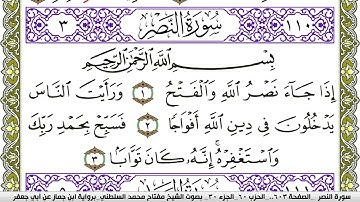 ٣ سُورَةُ النَّصْرِ ١١٠
بِسْمِ اللَّهِ الرَّحْمَٰنِ الرَّحِيمِ
إِذَا جَآءَ نَصْرُ اللَّهِ وَالْفَتْحُ ١ وَرَأَيْتَ النَّاسَ
يَدْخُلُونَ فِي دِينِ اللَّهِ أَفْوَاجًا ٢ فَسَبِّحْ بِحَمْدِ رَبِّكَ
وَاسْتَغْفِرْهُ إِنَّهُ كَانَ تَوَّابًا ٣
سورة النصر .. الصفحة ٦٠٣.. الحزب ٦٠.. الجزء ٣٠ بصوت الشيخ مفتاح محمد السلطني .برواية ابن جماز عن أبي جعفر